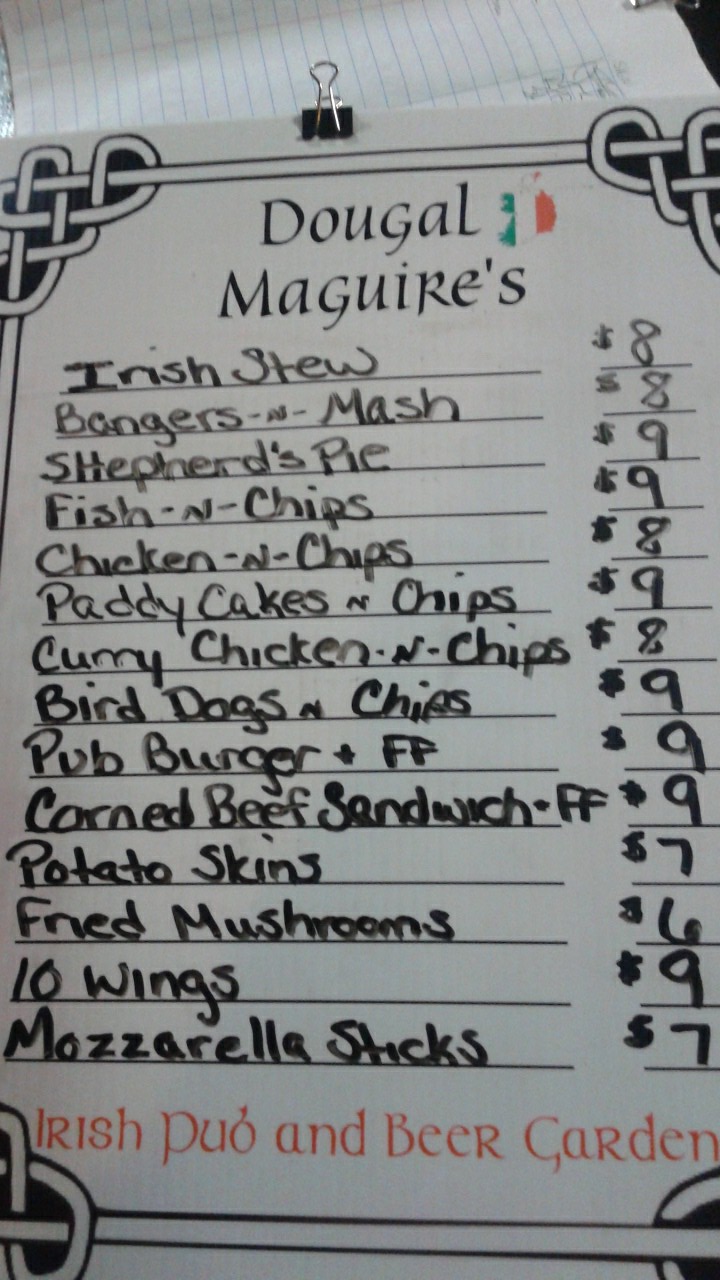 Dougal
Maguire's
Irish Stew $8
Bangers-N-Mash $8
Shepherd's Pie $9
Fish-N-Chips $9
Chicken-N-Chips $8
Paddy Cakes N Chips $9
Curry Chicken-N-Chips $8
Bird Dogs N Chips $9
Pub Burger + FF $9
Corned Beef Sandwich-FF $9
Potato Skins $7
Fried Mushrooms $6
10 Wings $9
Mozzarella Sticks $7
Irish Pub and Beer Garden